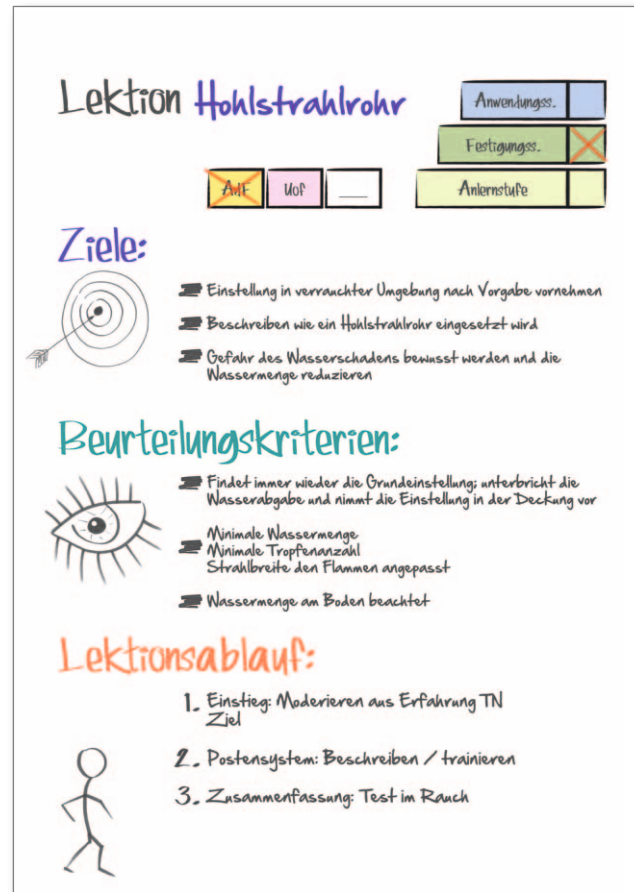 Lektion Hohlstrahlrohr
Anwendungss.
Festigungss.
AdF Uof ___ Anlernstufe
Ziele:
Einstellung in verrauchter Umgebung nach Vorgabe vornehmen
Beschreiben wie ein Hohlstrahlrohr eingesetzt wird
Gefahr des Wasserschadens bewusst werden und die
Wassermenge reduzieren
Beurteilungskriterien:
Findet immer wieder die Grundeinstellung; unterbricht die
Wasserabgabe und nimmt die Einstellung in der Deckung vor
Minimale Wassermenge
Minimale Tropfenanzahl
Strahlbreite den Flammen angepasst
Wassermenge am Boden beachtet
Lektionsablauf:
1. Einstieg: Moderieren aus Erfahrung TN
Ziel
2. Postensystem: Beschreiben / trainieren
3. Zusammenfassung: Test im Rauch